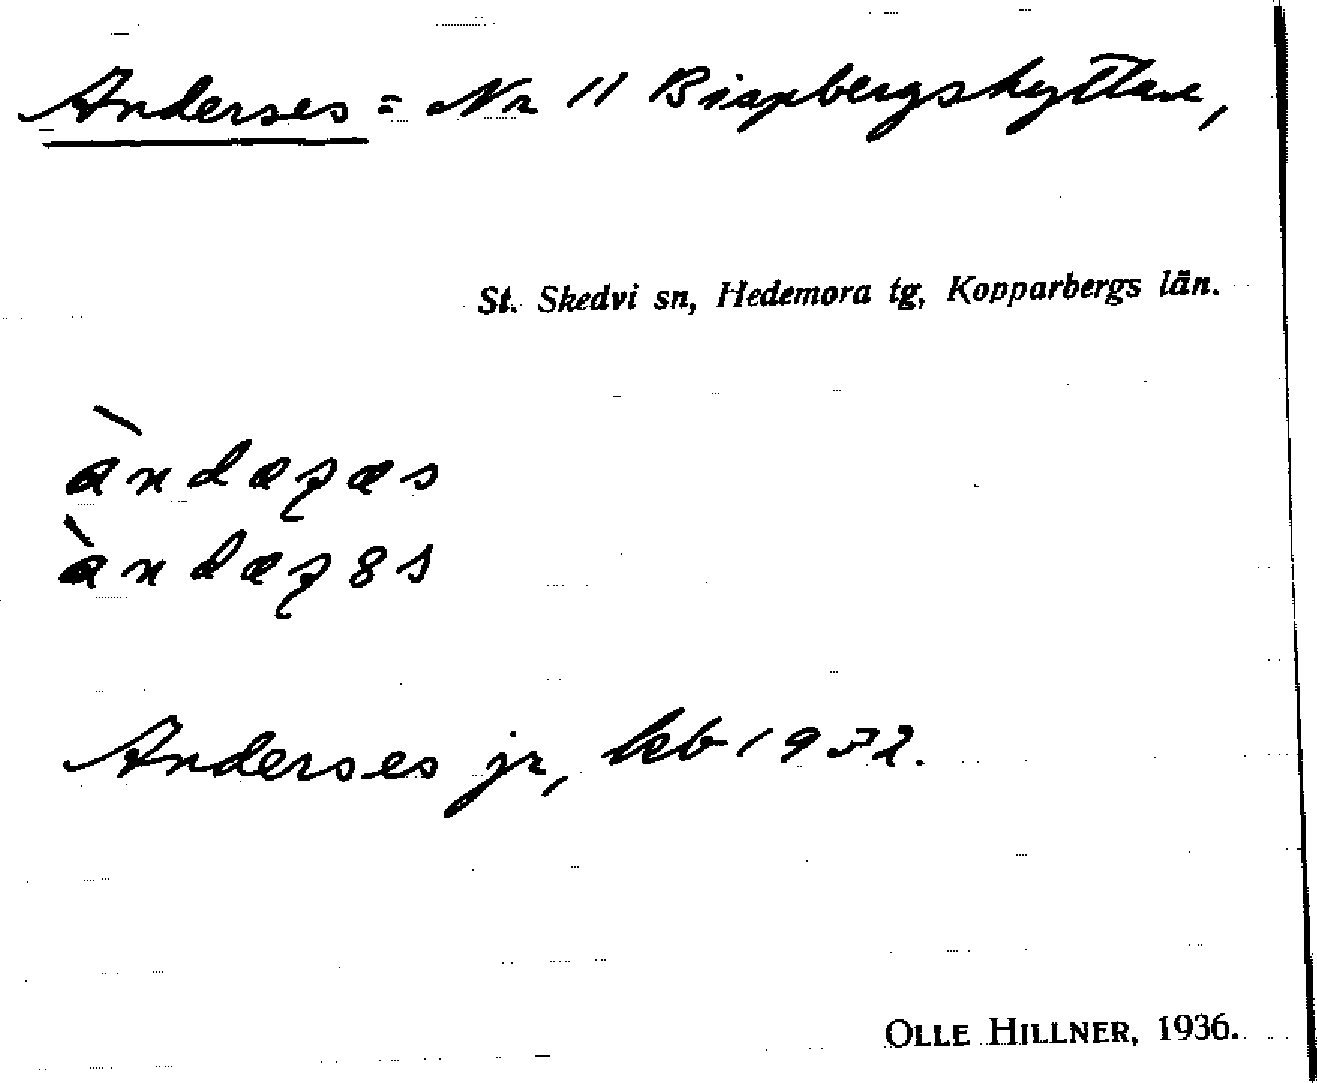 Anderses = Nr 11 Bispbergshyttan,
St. Skedvi sn, Hedemora tg, Kopparbergs län.
àndæʂæs
àndæʂ8s
Anderses jr, kb 1932.
OLLE HILLNER, 1936.